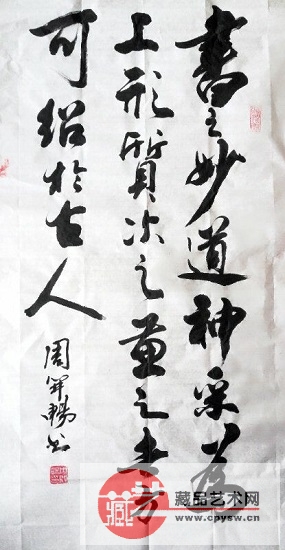 書之妙道神采為
上形質次之兼之者方
可紹於古人
周
藏
藏品艺术网
www.cpysw.cn